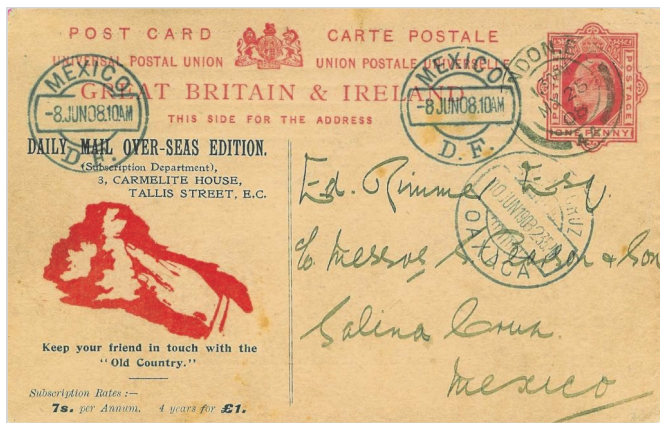 POST CARD CARTE POSTALE
UNIVERSAL POSTAL UNION UNION POSTALE UNIVERSELLE
GREAT BRITAIN & IRELAND
THIS SIDE FOR THE ADDRESS
POSTAGE
ONE PENNY
MEXICO
-8 JUN 08. 10AM
D. F.
MEXICO
-8 JUN 08. 10AM
D. F.
DAILY MAIL OVER-SEAS EDITION.
(Subscription Department),
3, CARMELITE HOUSE,
TALLIS STREET, E.C.
Keep your friend in touch with the
"Old Country."
Subscription Rates :—
7s. per Annum. 4 years for £1.
OAXACA
Ed. Rimmer Esq.
c/o Messrs S. Pearson & Son
Salina Cruz
Mexico